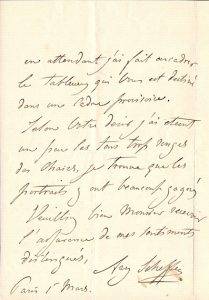 en attendant j'ai fait encadrer
le tableau qui vous est destiné
dans un cadre provisoire.
Selon votre désir j'ai éteint
un peu les tons trop rouges
des chairs, je trouve que les
portraits y ont beaucoup gagné
Veuillez bien Monsieur recevoir
l'assurance de mes sentiments
distingués,
Ary Scheffer
Paris 1 Mars.